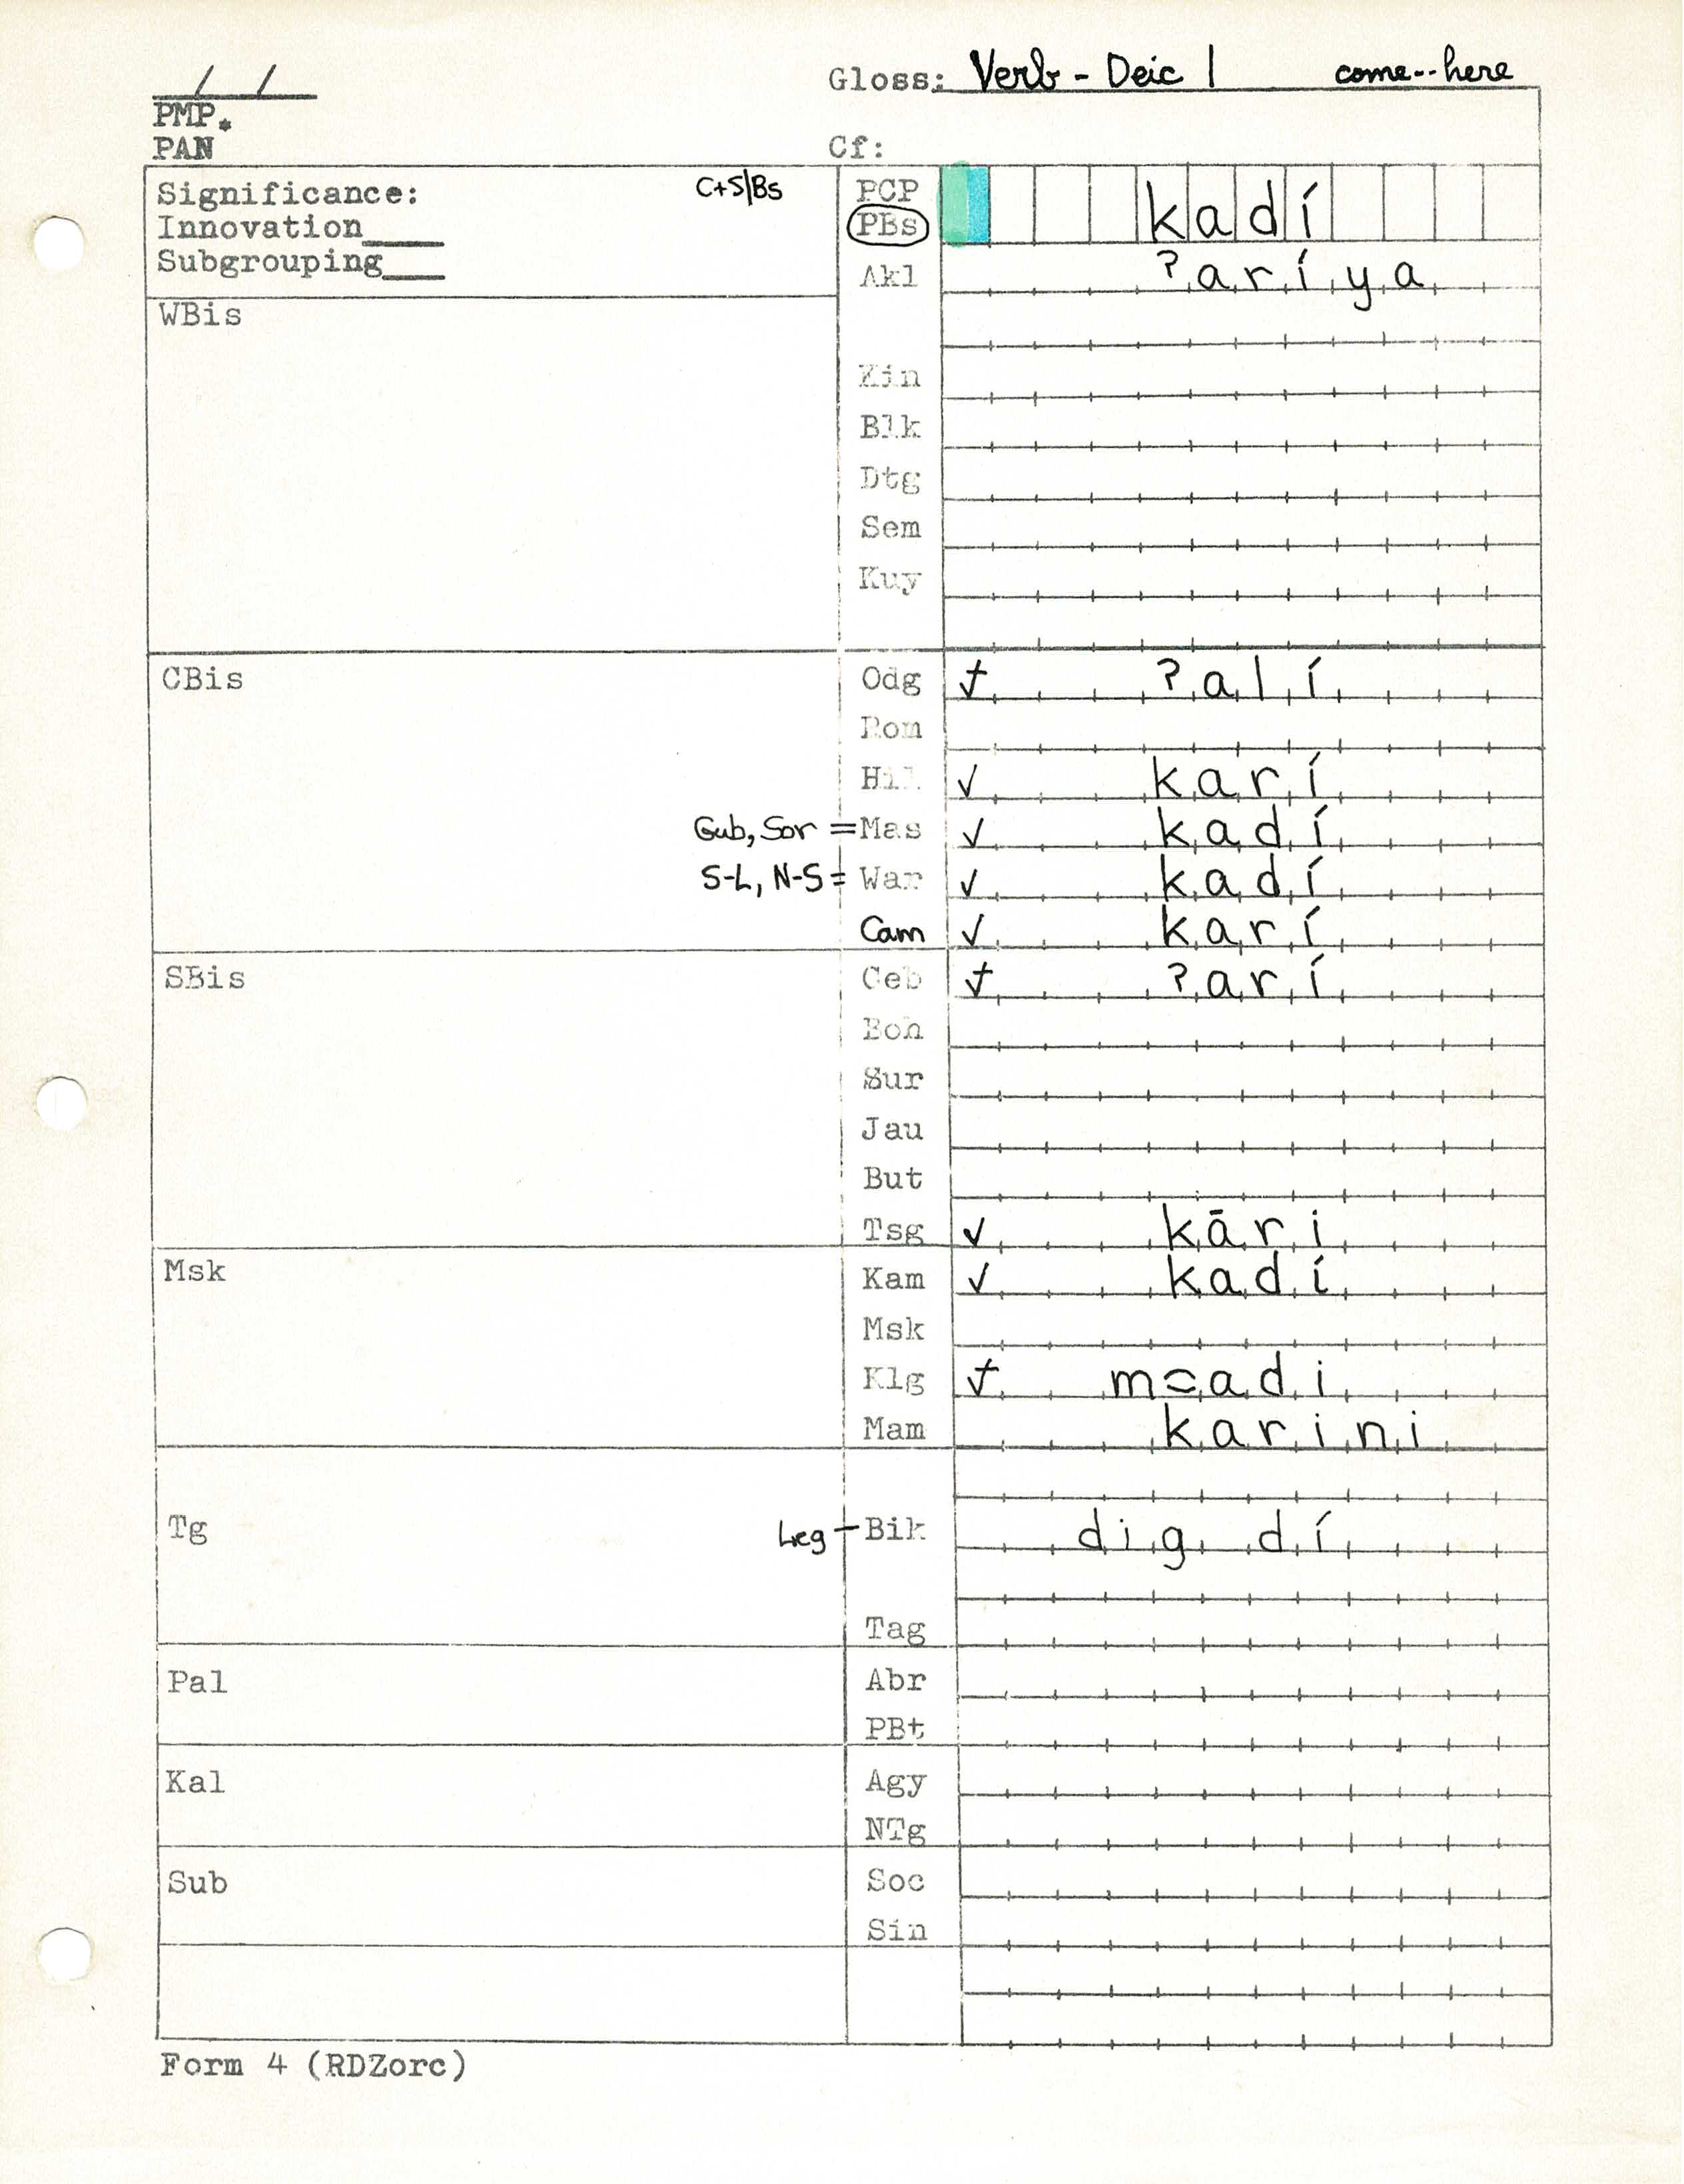 / /
Gloss: Verb - Deic 1 come--here
PMP.
PAN
Cf:
Significance: C+S|Bs
Innovation___
Subgrouping___
PCP
PBs kadí
Akl ʔaríya
WBis
Kin
Blk
Dtg
Sem
Kuy
CBis
Odg ✓ ʔalí
Rom
Hil ✓ karí
Gub, Sor = Mas ✓ kadí
S-L, N-S = War ✓ kadí
Cam ✓ karí
SBis
Ceb ✓ ʔarí
Boh
Sur
Jau
But
Tsg ✓ kāri
Msk
Kam ✓ kadí
Msk
Klg ✓ m=adi
Mam karini
Tg
Leg - Bik dig dí
Tag
Pal
Abr
PBt
Kal
Agy
NTg
Sub
Soc
Sin
Form 4 (RDZorc)